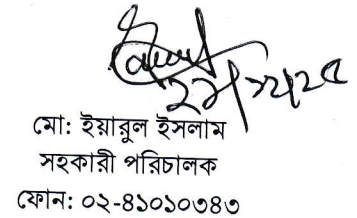 মো: ইয়ারুল ইসলাম
সহকারী পরিচালক
ফোন: ০২-৪১০১০৩৪৩